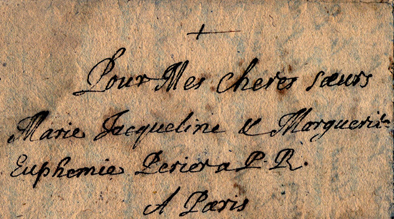 Pour Mes cheres sœurs
Marie Jacqueline & Marguerite
Euphemie Perier a P. R.
A Paris